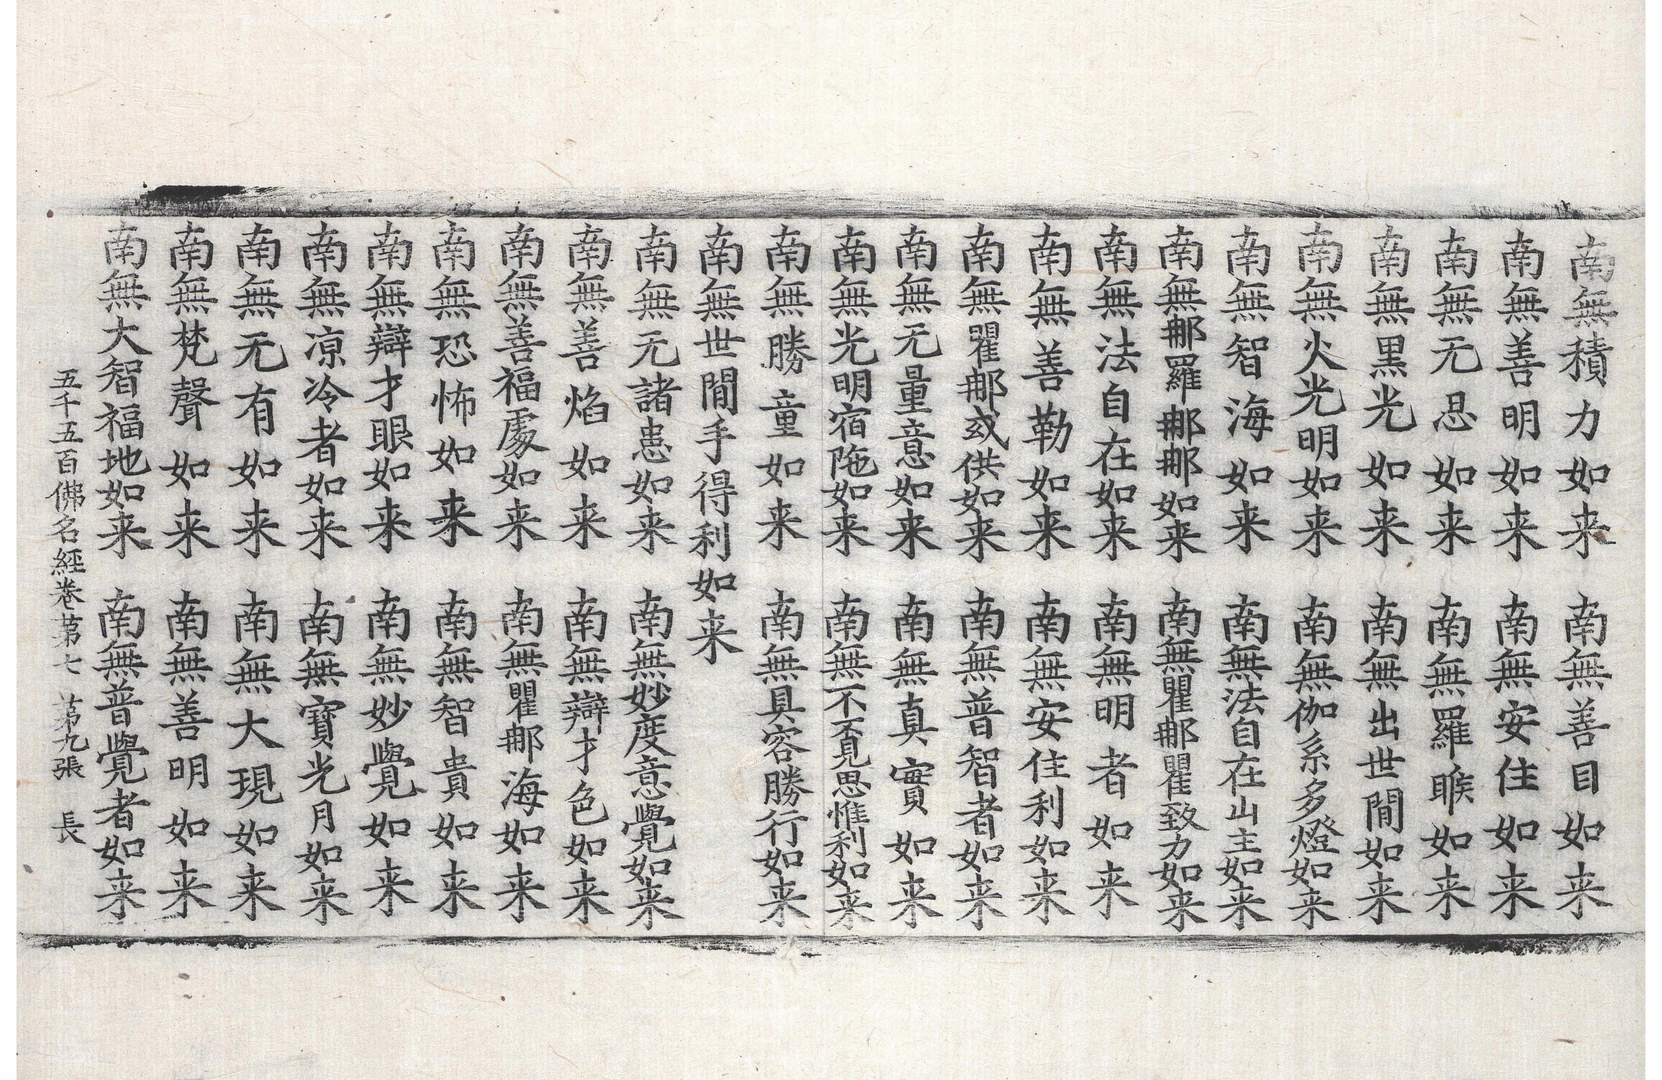 南無積力如来 南無善目如来
南無善明如来 南無安住如来
南無无忍如来 南無羅睺如来
南無黑光如来 南無出世間如来
南無火光明如来 南無伽系多燈如来
南無智海如来 南無法自在山主如来
南無那羅那那如来 南無瞿那瞿致力如来
南無法自在如来 南無明者如来
南無善勒如来 南無安住利如来
南無瞿那或供如来 南無普智者如来
南無无量意如来 南無真實如来
南無光明宿陁如来 南無不覓思惟利如来
南無勝童如来 南無具容勝行如来
南無世間手得利如来
南無无諸患如来 南無妙度意覺如来
南無善焰如来 南無辯才色如来
南無善福處如来 南無瞿那海如来
南無恐怖如来 南無智貴如来
南無辯才眼如来 南無妙覺如来
南無凉冷者如来 南無寶光月如来
南無无有如来 南無大現如来
南無梵聲如来 南無善明如来
南無大智福地如来 南無普覺者如来
五千五百佛名經卷第七 第九張 長